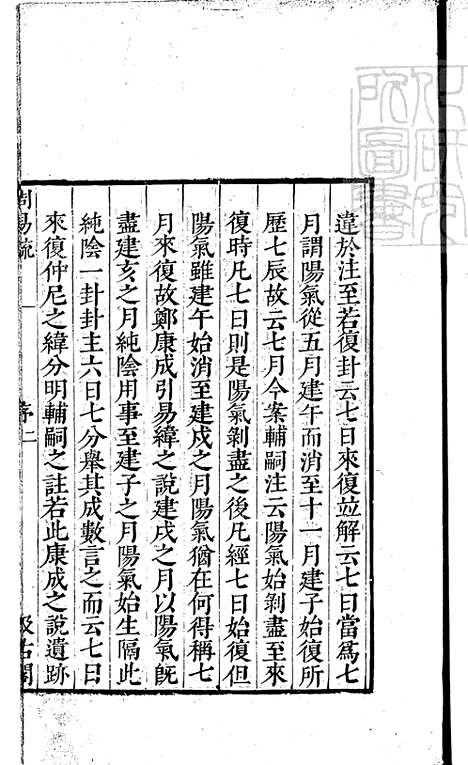 違於注至若復卦云七日來復並解云七日當爲七
月謂陽氣從五月建午而消至十一月建子始復所
歷七辰故云七月今案輔嗣注云陽氣始剝盡至來
復時凡七日則是陽氣剝盡之後凡經七日始復但
陽氣雖建午始消至建戌之月陽氣猶在何得稱七
月來復故鄭康成引易緯之說建戌之月以陽氣旣
盡建亥之月純陰用事至建子之月陽氣始生隔此
純陰一卦卦主六日七分舉其成數言之而云七日
來復仲尼之緯分明輔嗣之註若此康成之說遺跡
周易疏 一 序二 汲古閣